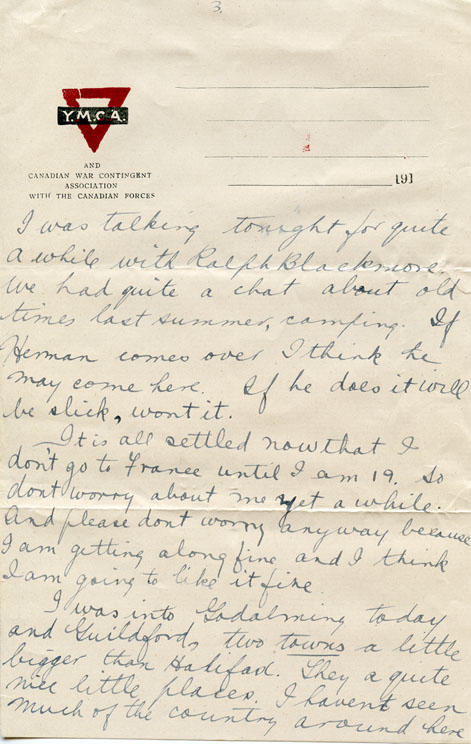 3.
Y.M.C.A.
AND
CANADIAN WAR CONTINGENT
ASSOCIATION
WITH THE CANADIAN FORCES
191
I was talking tonight for quite
a while with Ralph Blackmore.
We had quite a chat about old
times last summer, camping. If
Herman comes over I think he
may come here. If he does it will
be slick, wont it.
It is all settled now that I
don't go to France until I am 19. So
dont worry about me yet a while.
And please dont worry anyway because
I am getting along fine and I think
I am going to like it fine
I was into Godalming today
and Guildford, two towns a little
bigger than Halifax. They a quite
nice little places. I havent seen
much of the country around here